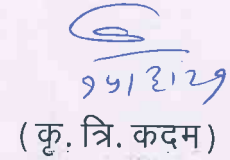 १५/३/२१
( कृ. त्रि. कदम )